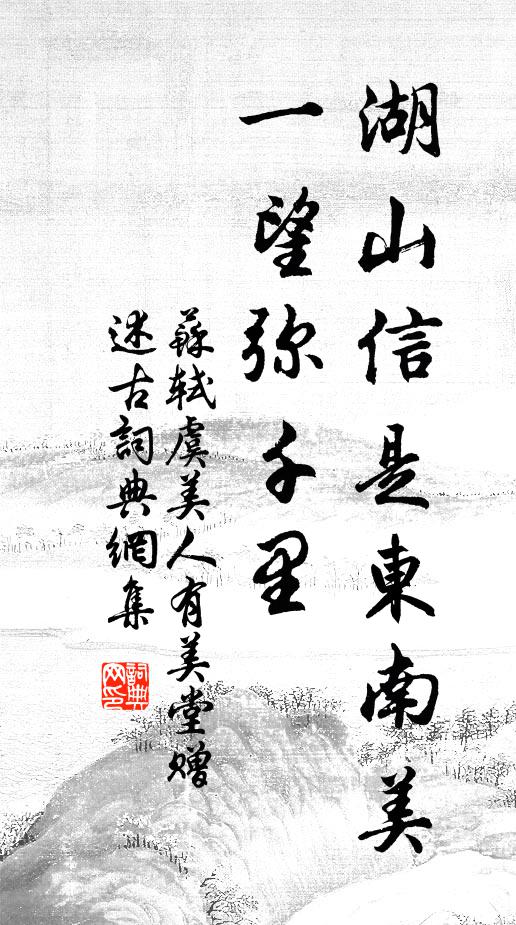 湖山信是東南美
一望弥千里
蘇軾虞美人有美堂贈
述古詞典網集
詞典
网印